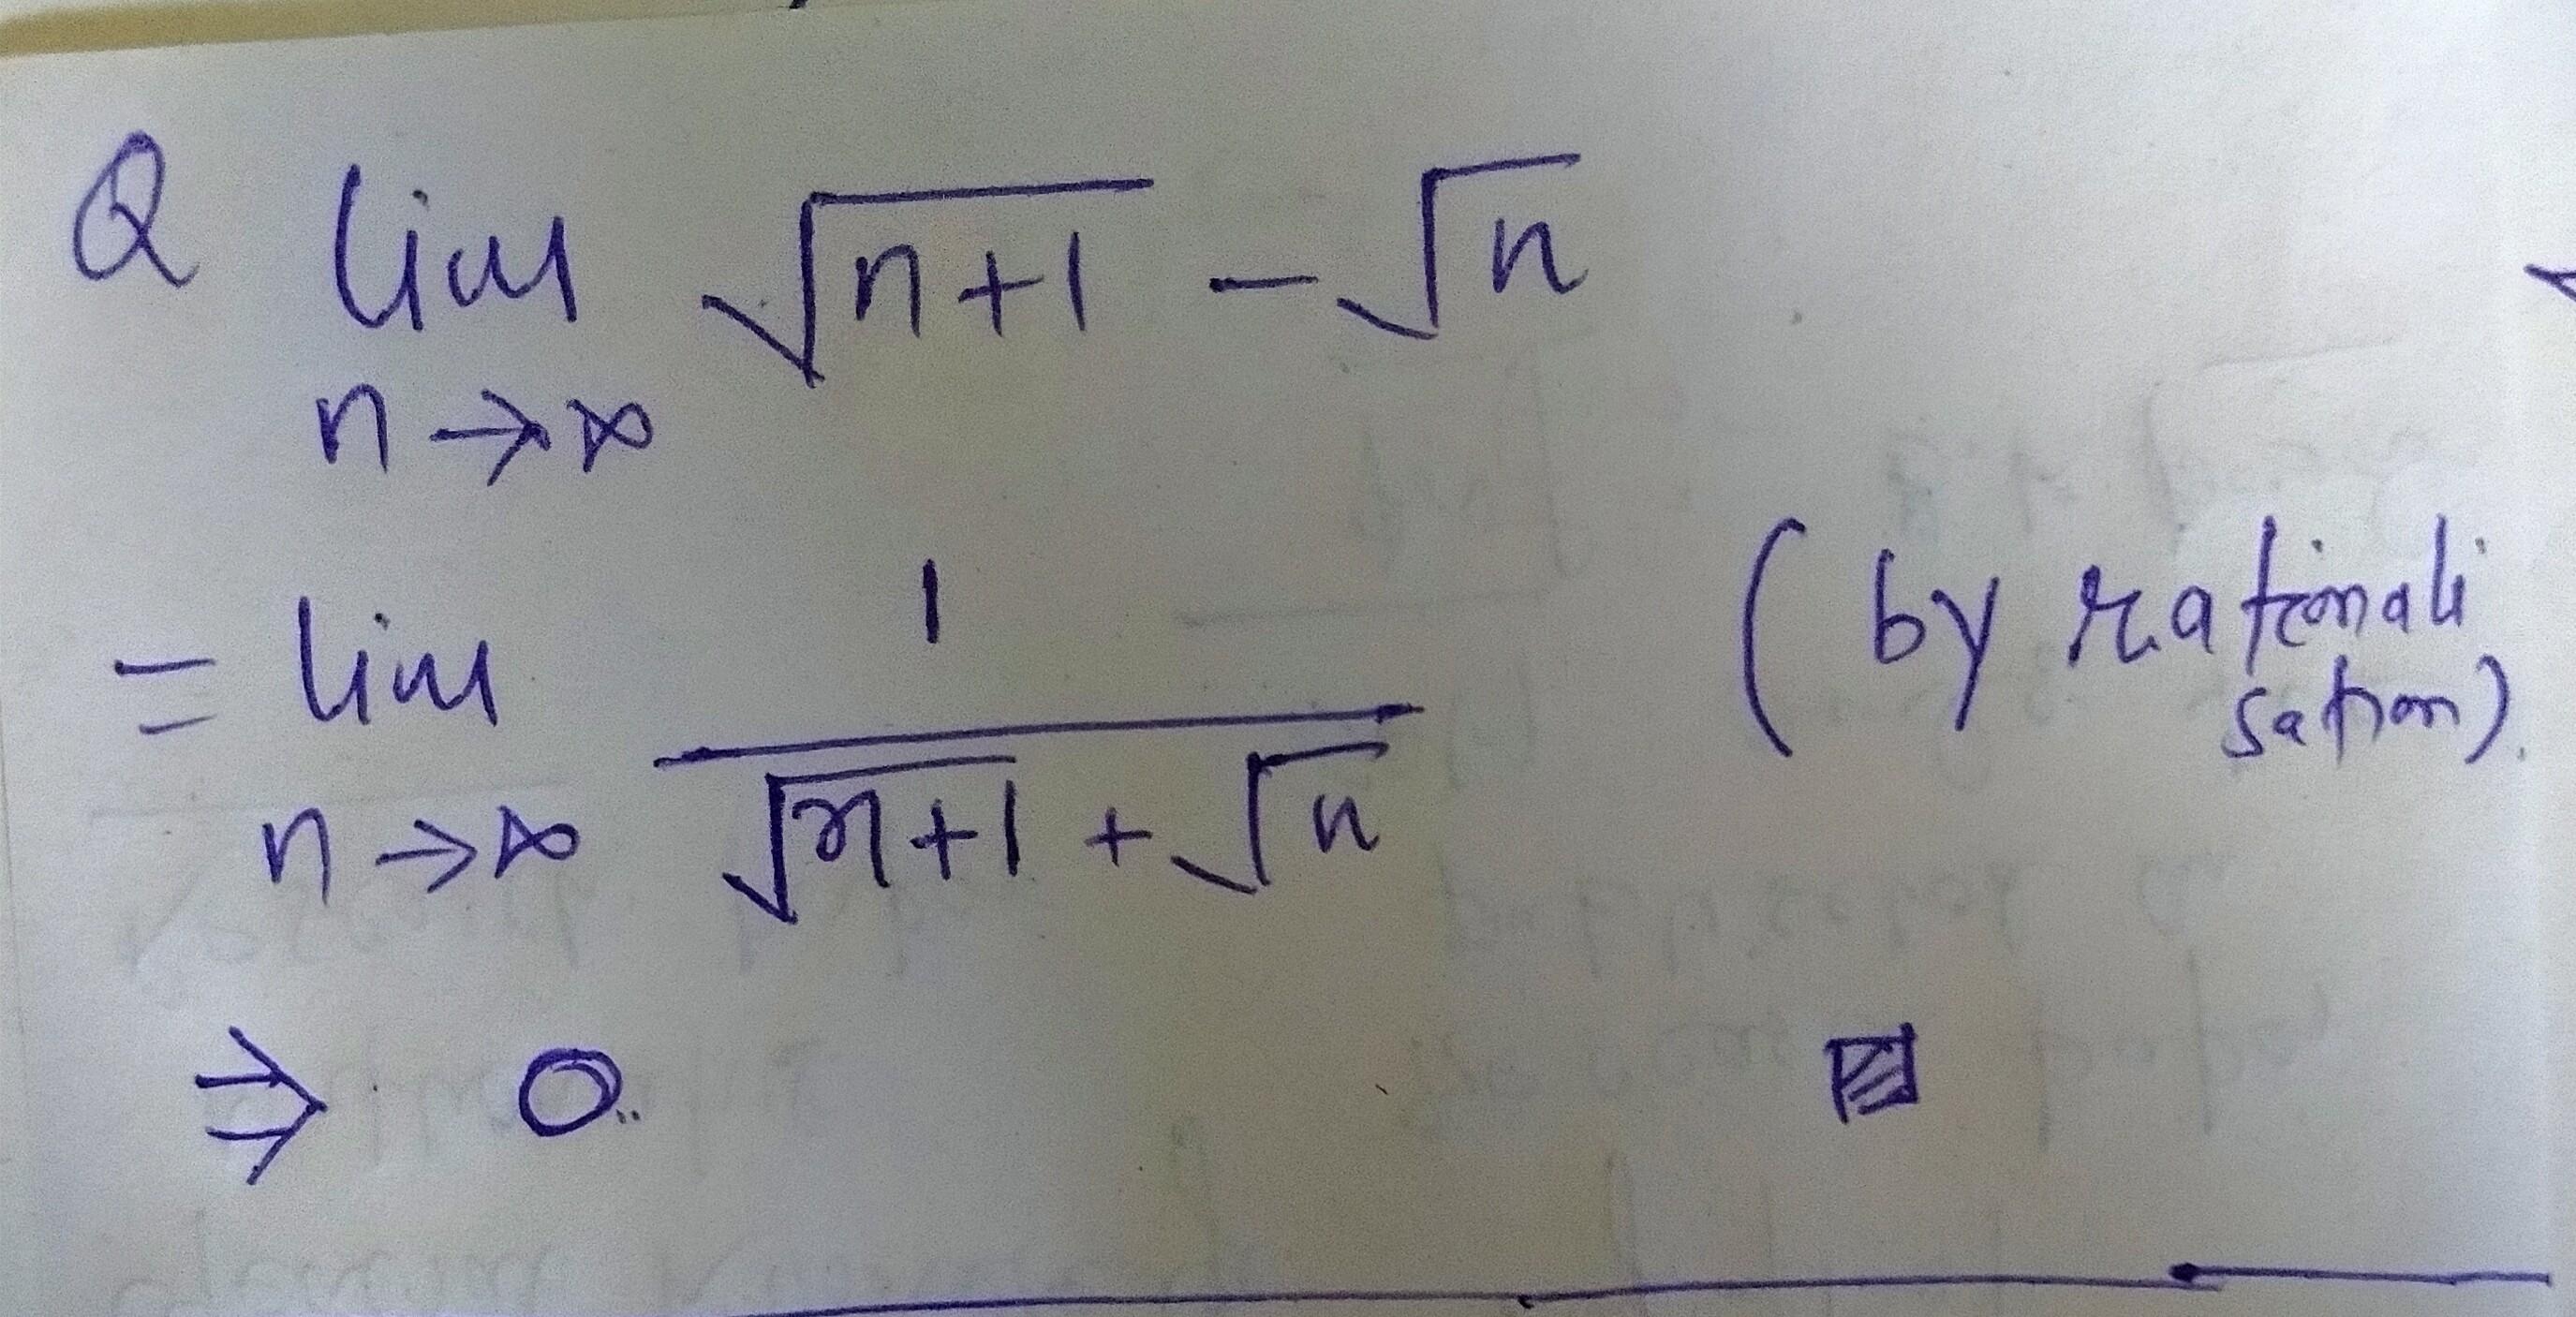 Q lim √(n+1) - √n
n → ∞
= lim 1 / (√(n+1) + √n) (by rationali
n → ∞ sation).
⇒ 0.